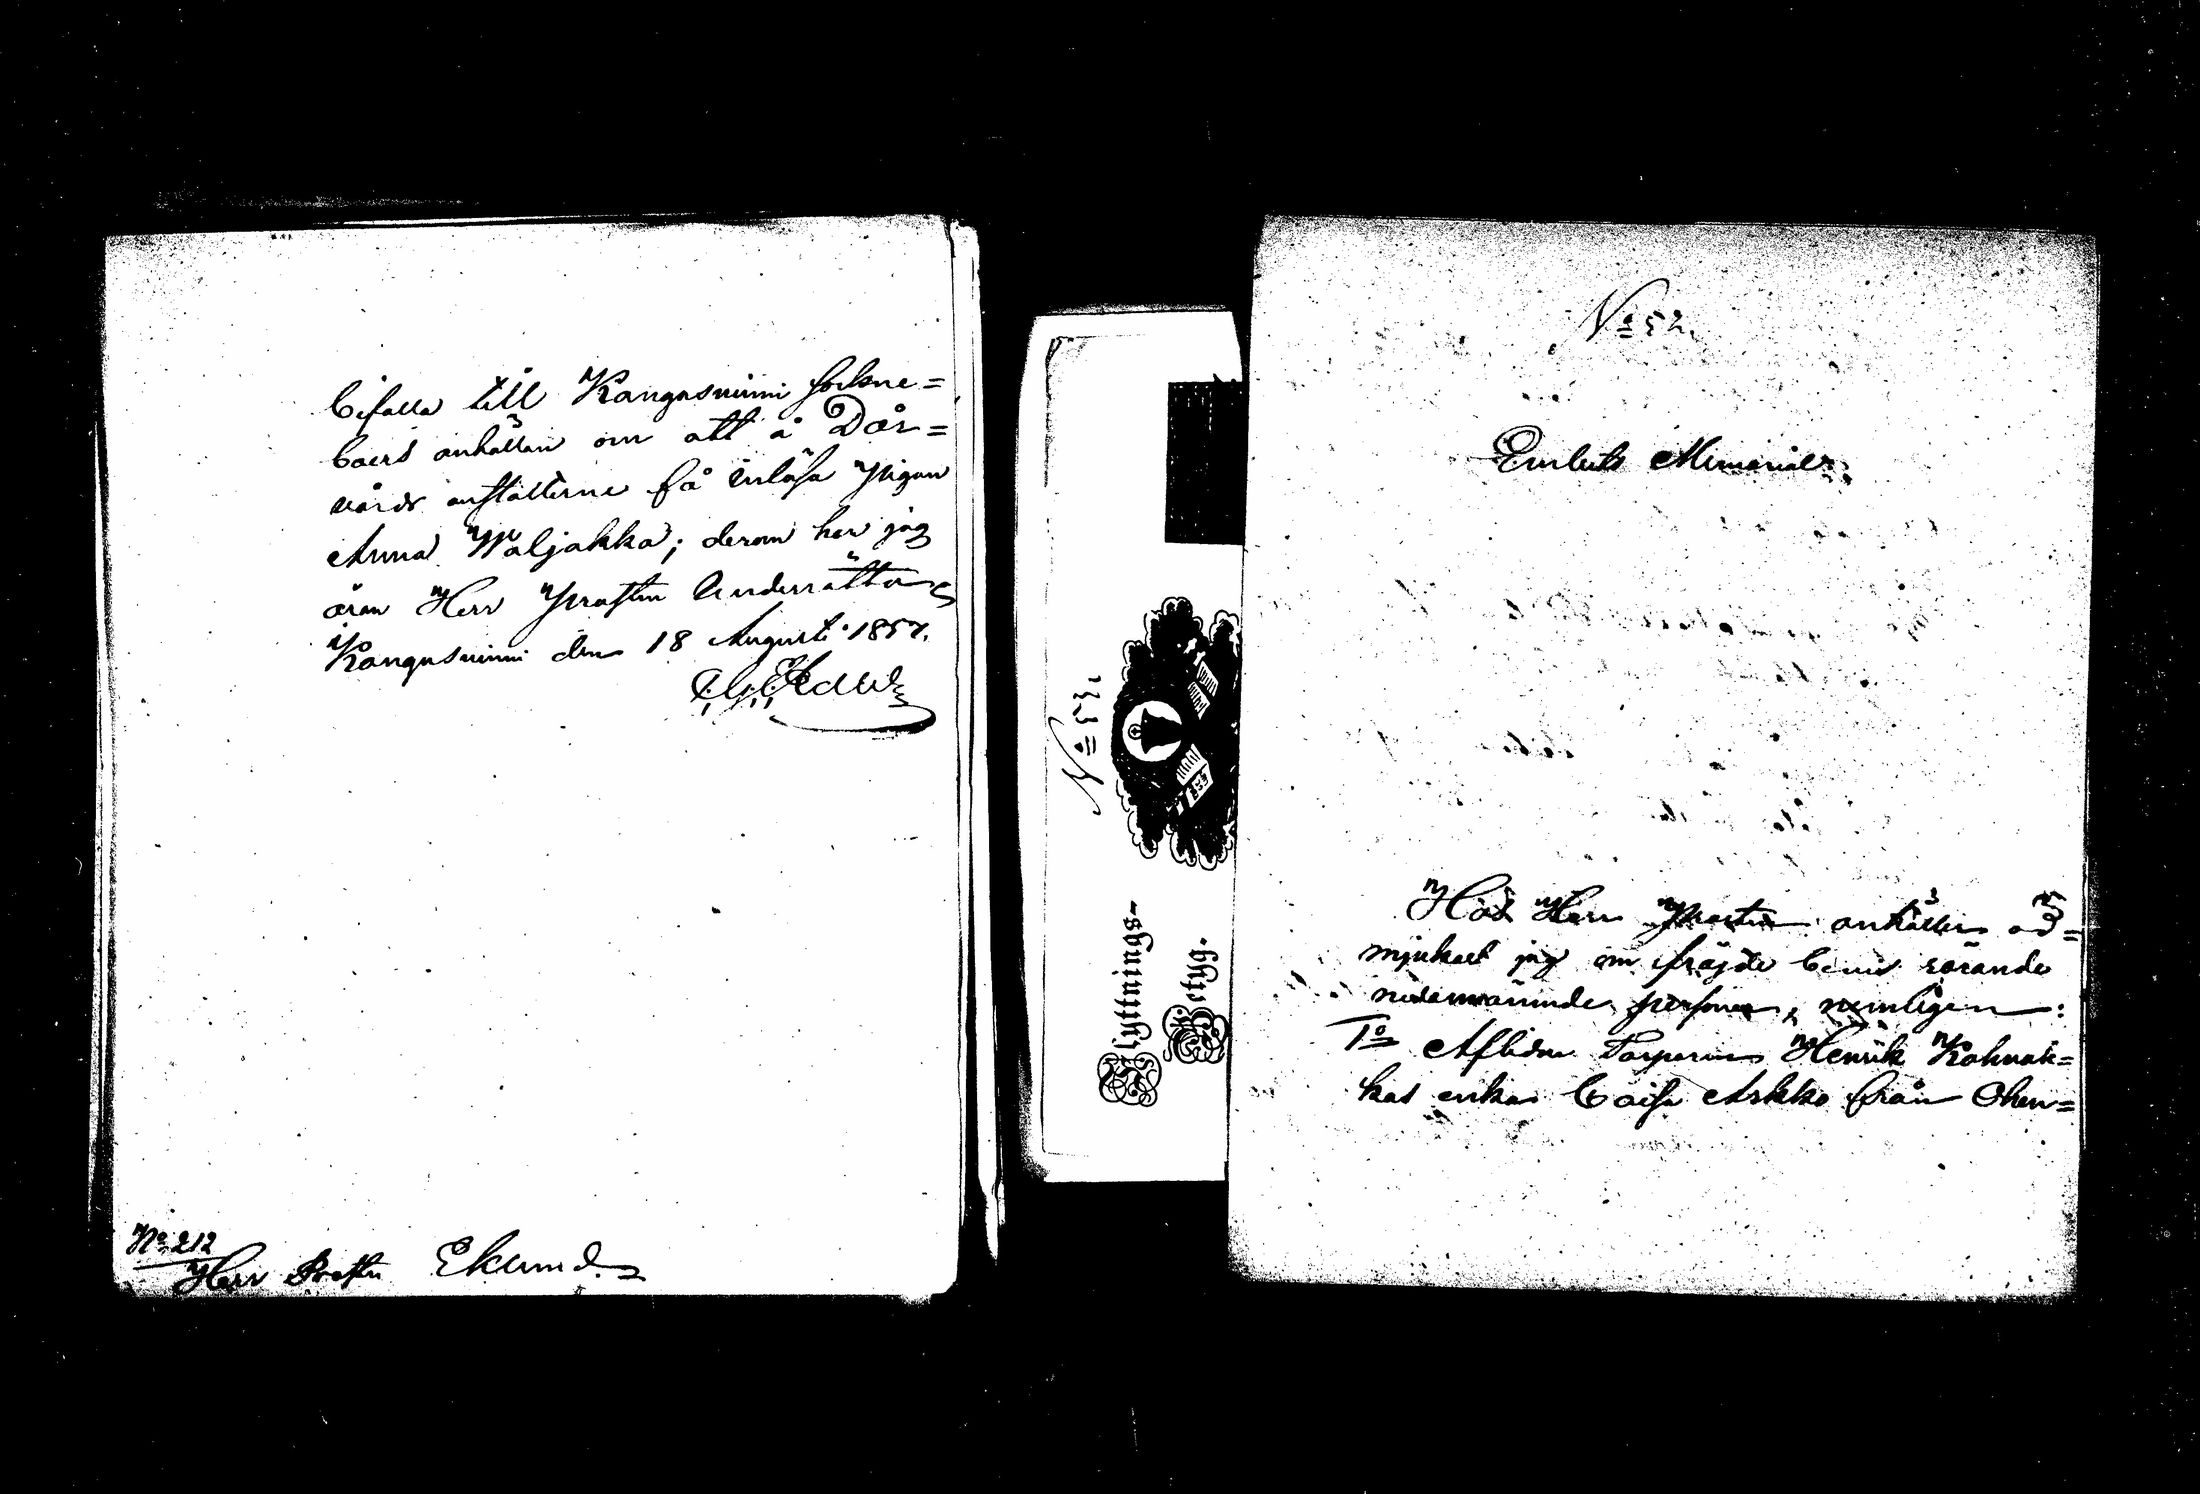 bifalla till Kangasniemi sockne=
boers anhållan om att å Dår=
vårds anstalterne få inlösa Pigan
Anna Waljakka; derom har jag
äran Herr Prosten Underrätta
Kangasniemi den 18 Augusti 1857.
No 212
Herr Prosten Eklund.
No 53.
Flyttnings-
Betyg.
No 52.
Embets Memorial
Hos Herr Prosten anhåller öd=
mjukast jag om fräjde bevis rörande
nedannämnde personer, nemligen:
1o Aflidne Torparen Henrik Kohvak=
kas enka Caisa Arkko från Ohen=